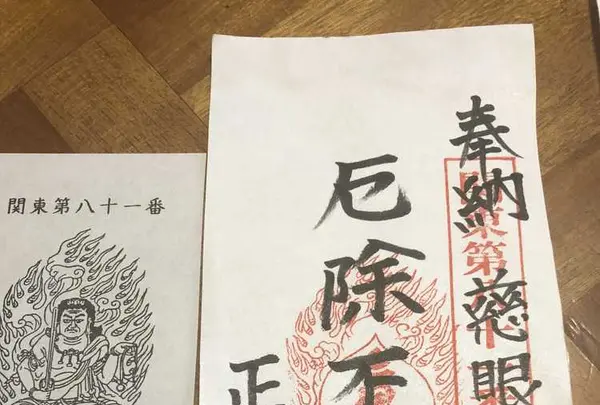 関東第八十一番
奉納 慈眼
東第
厄除不
正